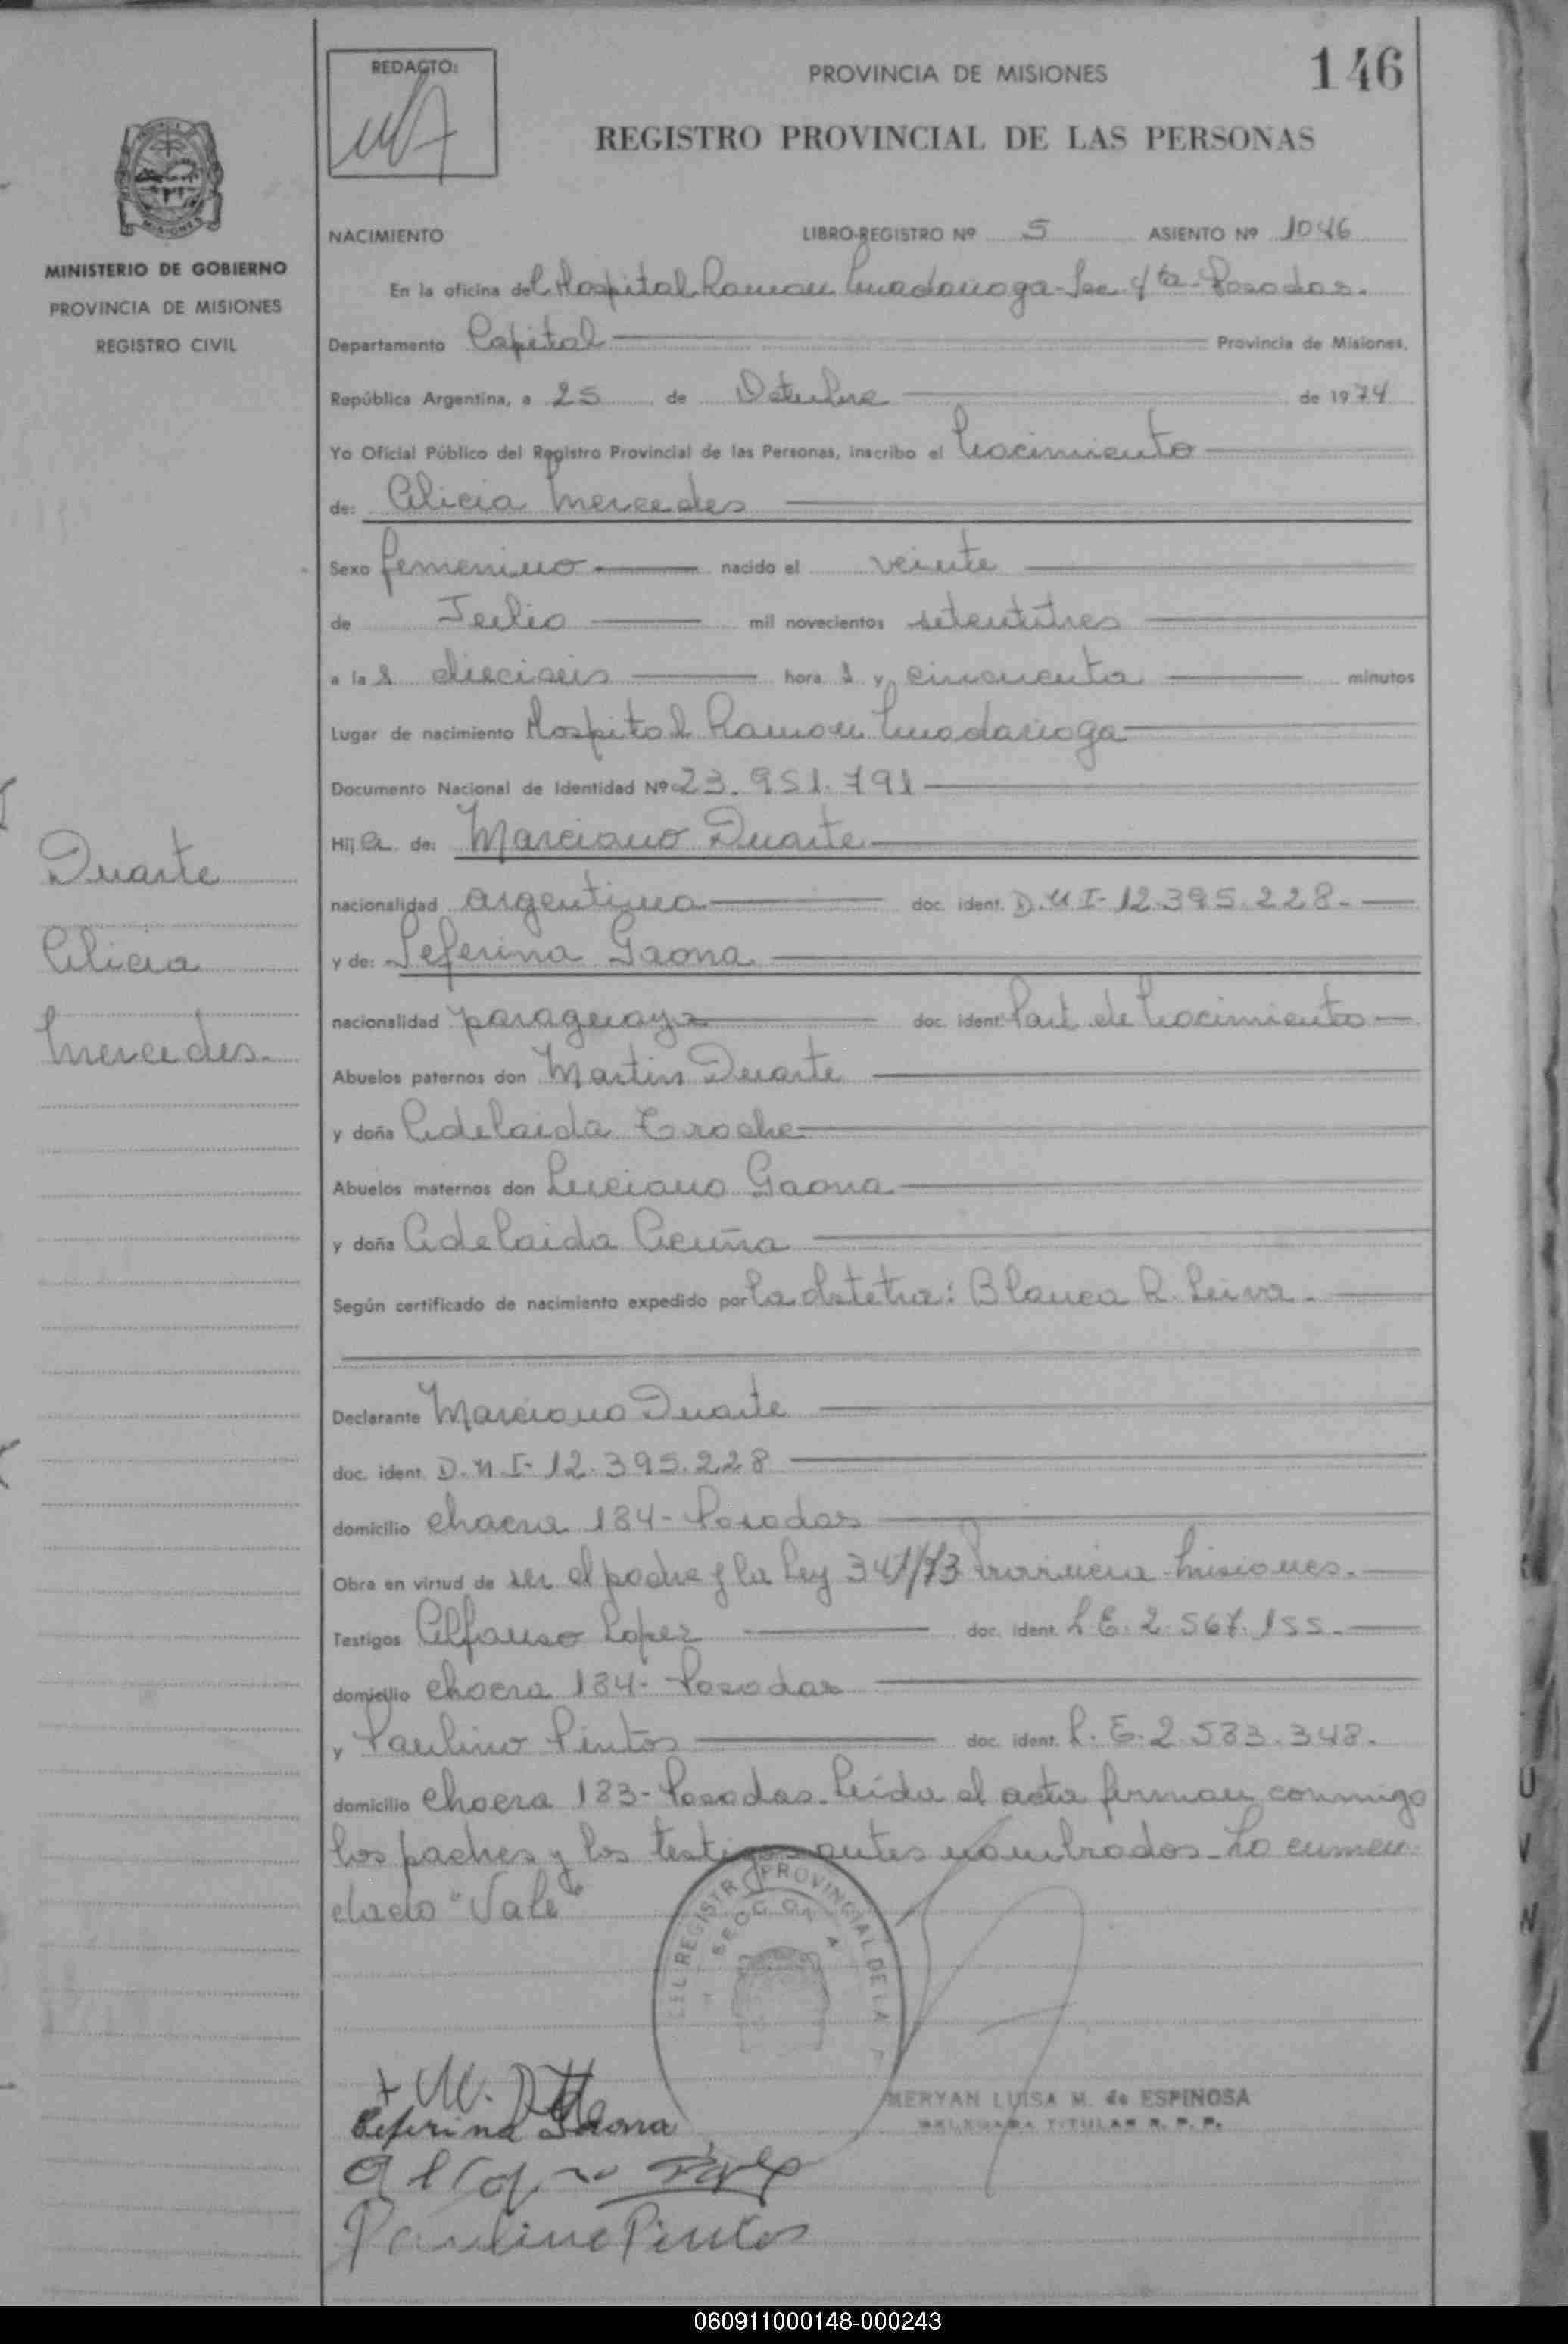 146
REDACTO:
PROVINCIA DE MISIONES
REGISTRO PROVINCIAL DE LAS PERSONAS
MISIONES
MINISTERIO DE GOBIERNO
PROVINCIA DE MISIONES
REGISTRO CIVIL
NACIMIENTO LIBRO-REGISTRO Nº 5 ASIENTO Nº 1046
En la oficina del Hospital Ramon Madariaga - Sec. 4ta - Posadas.
Departamento Capital Provincia de Misiones,
República Argentina, a 25 de Octubre de 1974
Yo Oficial Público del Registro Provincial de las Personas, inscribo el Nacimiento
de: Alicia Mercedes
Sexo femenino nacido el veinte
de Julio mil novecientos setentitres
a las dieciseis horas y cincuenta minutos
Lugar de nacimiento Hospital Ramon Madariaga
Documento Nacional de Identidad Nº 23.951.791
Hija de: Marciano Duarte
nacionalidad argentino doc. ident. D.N.I- 12.395.228.-
y de: Seferina Gaona
nacionalidad paraguaya doc. ident. Part. de Nacimiento
Abuelos paternos don Martin Duarte
y doña Adelaida Troche
Abuelos maternos don Luciano Gaona
y doña Adelaida Acuña
Según certificado de nacimiento expedido por la obstetra: Blanca R. Leiva.
Declarante Marciano Duarte
doc. ident. D.N.I- 12.395.228
domicilio chacra 184- Posadas
Obra en virtud de ser el padre y la Ley 347/73 Provincia Misiones.
Testigos Alfonso Lopez doc. ident. L.E. 2.567.155.
domicilio chacra 184- Posadas
y Paulino Pintos doc. ident. L.E. 2.583.348.
domicilio chacra 183- Posadas. Leída el acta firman conmigo
los padres y los testigos antes nombrados. Lo enmen-
dado "Vale"
REGISTRO PROVINCIAL DE LA
MERYAN LUISA M. de ESPINOSA
DELEGADA TITULAR R. P. P.
Ceferina Gaona
Paulino Pintos
Duarte
Alicia
Mercedes.
060911000148-000243